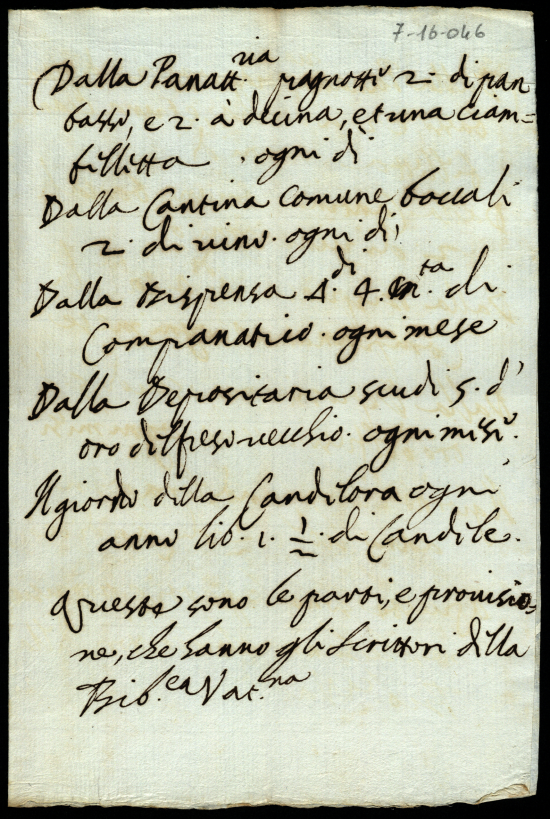 7-16-046
Dalla Panatt.ria pagnotti 2. di pan
basso, e 2. à decina, et una ciam=
billetta . ogni dì
Dalla Cantina comune boccali
2. di vino. ogni dì,
Dalla Dispensa di 4. m.ta di
Companatico. ogni mese
Dalla Depositaria scudi 5. d'
oro vecchio. ogni misi.
Il giorno della Candilora ogni
anno lib. 1. 1/2. di Candile.
Queste sono le parti, e provisio=
ne, che hanno gli Scrittori della
Bib.ea Vat.na